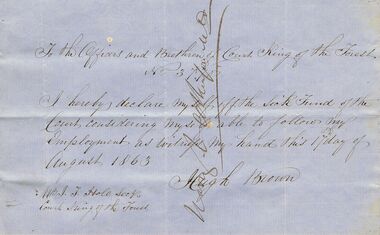 To the Officers and Brethren Court King of the Forest
No 3
I hereby declare myself off the Sick Fund of the
Court considering myself able to follow my
Employment as witness my hand this 17 day of
August 1863
Hugh Brown
Court King of the Forest